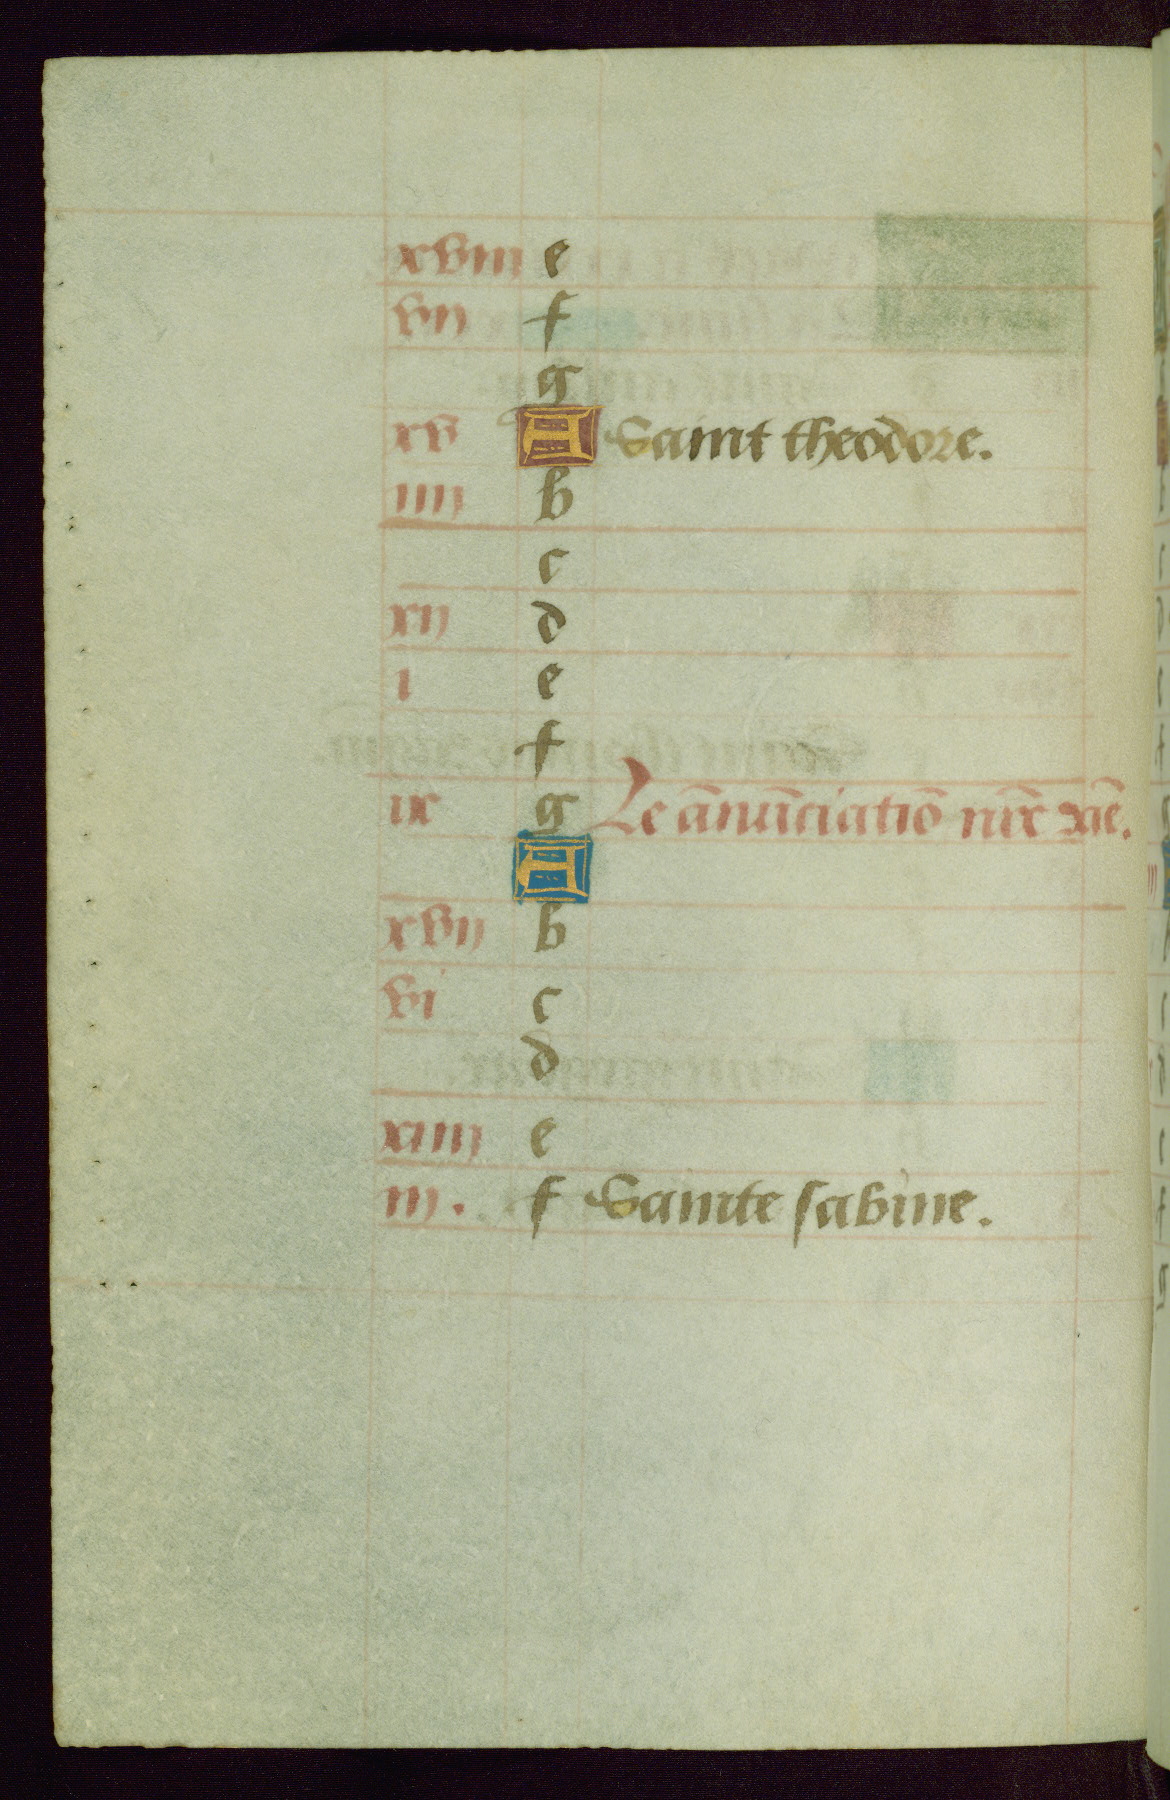 xviii e
vii f
g
xv A Saint theodore.
iiii b
c
xii d
i e
f
ix g Le ānūciatiō nr̄e dāe.
A
xvii b
vi c
d
xiiii e
iii. f Sainte sabine.